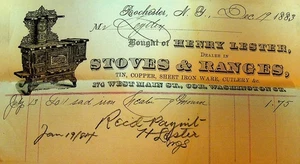 Rochester, N. Y. Dec 19 1883
M
Bought of HENRY LESTER,
DEALER IN
STOVES & RANGES,
TIN, COPPER, SHEET IRON WARE, CUTLERY &c
WEST MAIN ST., COR. WASHINGTON ST.
1 sad iron 1.75
Jan 19/84 Recd Paymt
H Lester